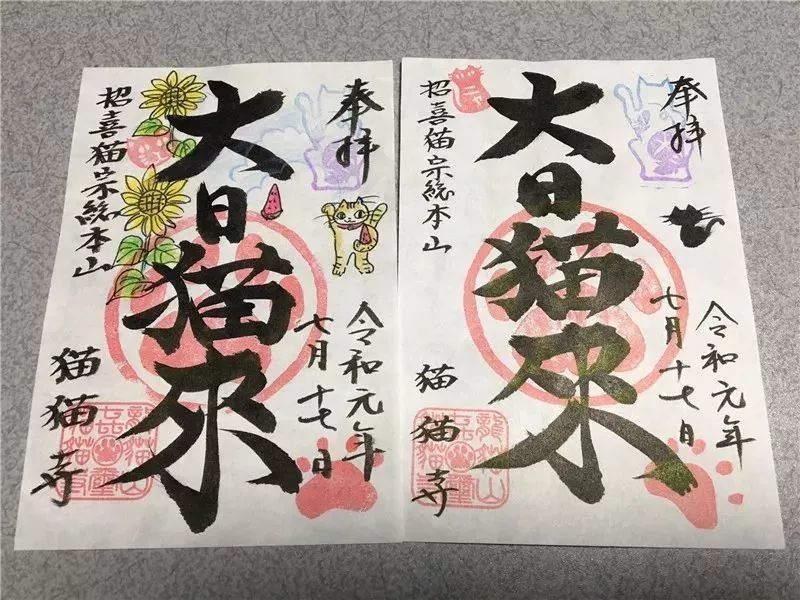 奉拝
令和元年
七月十七日
大日猫來
招喜猫宗総本山
猫猫寺
奉拝
令和元年
七月十七日
大日猫來
招喜猫宗総本山
猫猫寺